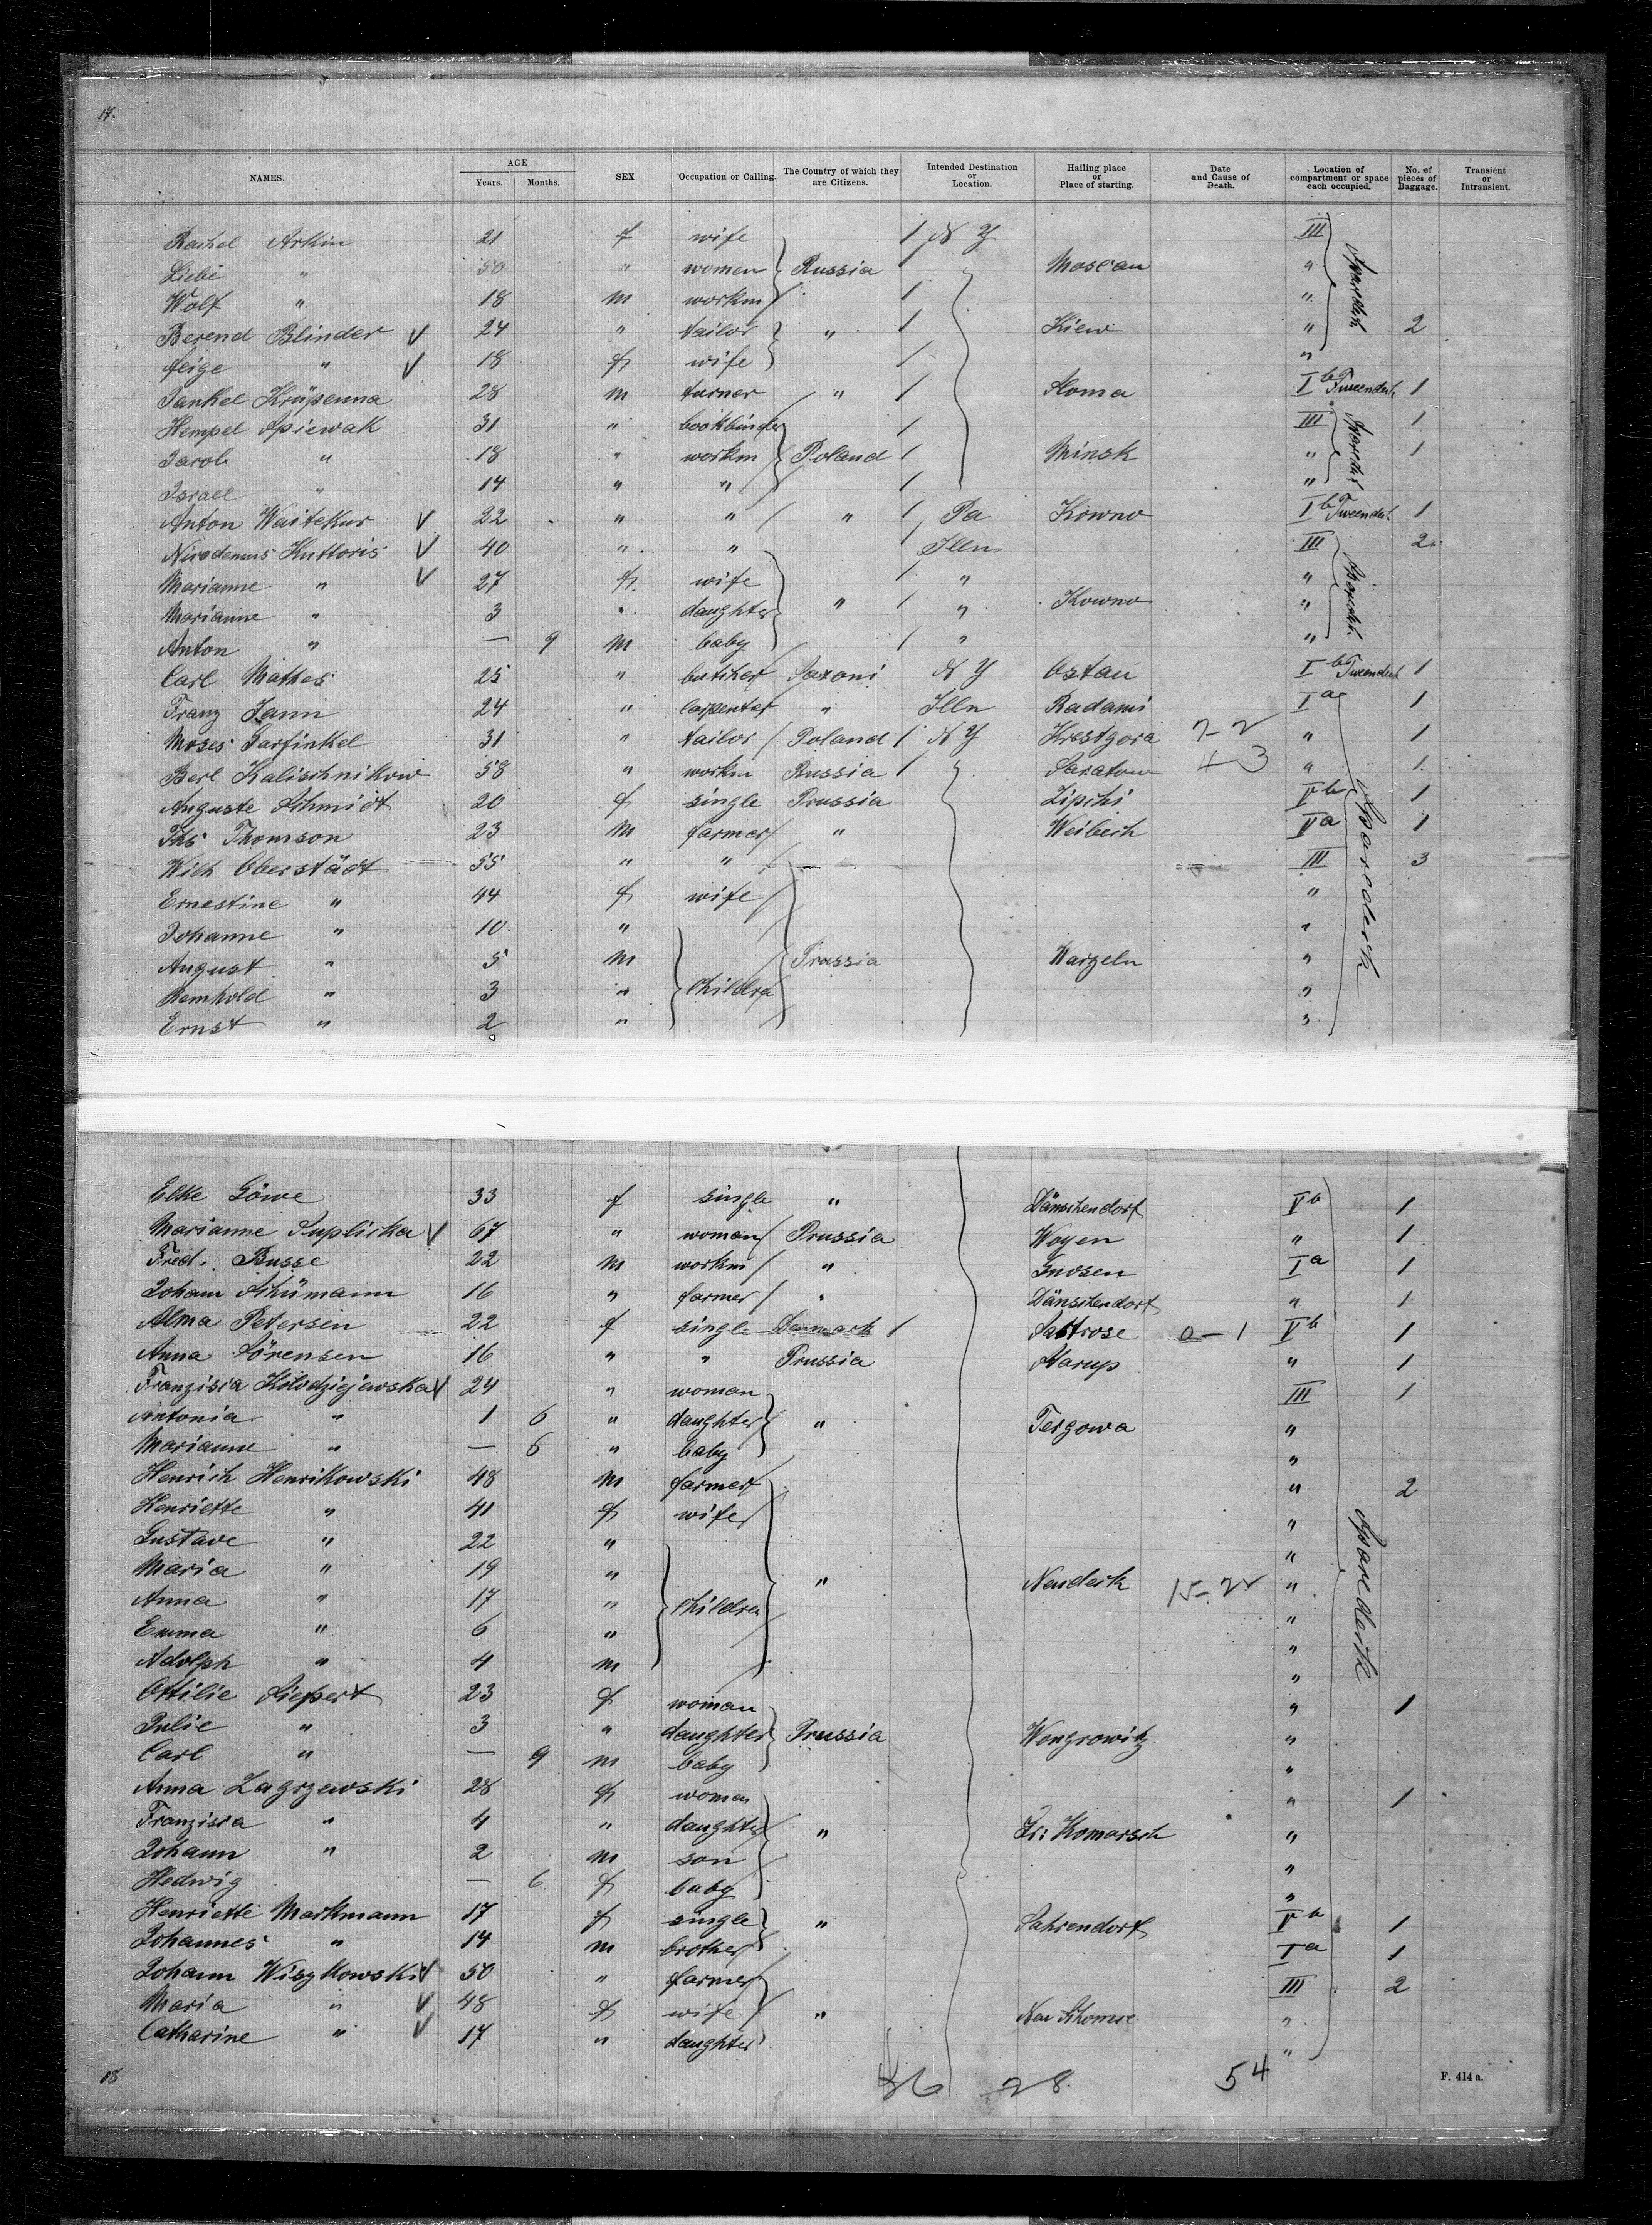 17.
NAMES. AGE Years. Months. SEX Occupation or Calling. The Country of which they are Citizens. Intended Destination or Location. Hailing place or Place of starting. Date and Cause of Death. Location of compartment or space each occupied. No. of pieces of Baggage. Transient or Intransient.
Rachel Arkin 21 f wife / N Y III
Liebe " 50 " women Russia / Moscau "
Wolf " 18 m workm / "
Berend Blinder V 24 " tailor " / Kiew " 2
feige " V 18 f wife / "
Jankel Krüpenna 28 m turner " / Homa I b Tweendeck 1
Hempel Spiewak 31 " bookbinder / III 1
Jacob " 18 " workm Poland / Minsk " 1
Israel " 14 " " / "
Anton Waitekus V 22 " " " / Pa Kowno I b Tweendeck 1
Nicodemus Kuttoris V 40 " " Illn III 2
Marianne " V 27 f wife / " "
Marianne " 3 " daughter " / " Kowno "
Anton " — 9 m baby / " "
Carl Mathes 25 " butcher Saxoni N Y Ostau I b Tweendeck 1
Franz Jann 24 " carpenter " Illn Radami I a 1
Moses Garfinkel 31 " tailor Poland / N Y Krestgora 7-2 " 1
Berl Kalischnikow 58 " workm Russia / Saratow 4 3 " 1
Auguste Schmidt 20 f single Prussia Lipchi V b 1
Ths Thomson 23 m farmer " Weibeck V a 1
Wich Oberstädt 55 " " III 3
Ernestine " 44 f wife "
Johanne " 10 " "
August " 5 m Prussia Wargeln "
Reinhold " 3 " Childre "
Ernst " 2 " "
Spardeck
Elke Göwe 33 f single " Dänschendorf V b 1
Marianne Suplicka V 67 " woman Prussia Woyen " 1
Fred. Busse 22 m workm " Gnosen I a 1
Joham Schümann 16 " farmer " Dänschendorf " 1
Alma Petersen 22 f single Denmark / Sastrose 0-1 V b 1
Anna Sörensen 16 " " Prussia Aarup " 1
Franzisca Kolodziejewska V 24 " woman III 1
Antonia " 1 6 " daughter " Tergowa "
Marianne " — 6 " baby "
Henrich Henrikowski 48 m farmer " 2
Henriette " 41 f wife "
Gustave " 22 " "
Maria " 19 " " Neudeck 15-2 "
Anna " 17 " Childre "
Emma " 6 " "
Adolph " 4 m "
Ottilie Siefert 23 f woman " 1
Julie " 3 " daughter Prussia Wongrowitz "
Carl " — 9 m baby "
Anna Zagrzewski 28 f woman " 1
Franzisca " 4 " daughter " Komorsch "
Johann " 2 m son "
Hedwig — 6 f baby "
Henriette Markmann 17 f single " Sahrendorf V b 1
Johannes " 14 m brother I a 1
Johann Wisykowski V 50 " farmer III 2
Maria " V 48 f wife " "
Catharine " V 17 " daughter "
Spardeck
18 28 54 F. 414 a.